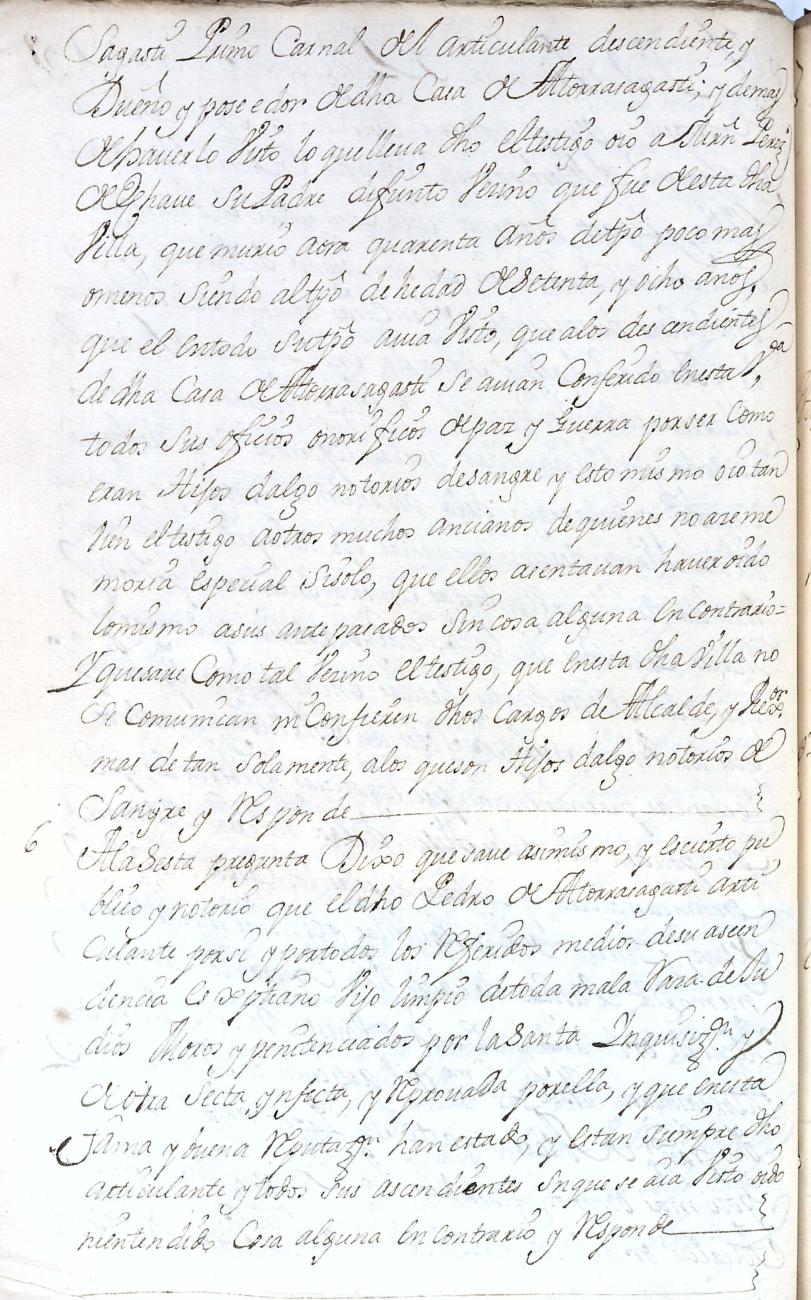 Sagasti Primo Carnal del articulante descendiente, y
Dueño y poseedor de dha Casa de Atorrasagasti; y demas
de haverlo visto lo que lleva dho el testigo oio a Mrñ Perez
de Chave su Padre difunto Vezino que fue de esta dha
Villa, que murio aora quarenta años de tpô poco mas
omenos siendo al tpô de hedad de setenta, y ocho años,
que el entodo su tpô avia visto, que alos descendientes
de dha Casa de Atorrasagasti se avian Conferido enesta Vª
todos sus oficios onorificos de paz y guerra por ser Como
eran Hijos dalgo notorios desangre y esto mismo oio tan
vien el testigo aotros muchos ancianos de quienes no aze me
moria Especial sisolo, que ellos asentavan haver oido
lo mismo asus antepasados sin cosa alguna en contrario=
Y que save Como tal Vezino el testigo, que enesta dha Villa no
se Comunican ni Confieren dhos cargos de Alcalde, y Rexor
mas de tan solamente, alos que son Hijos dalgo notorios de
Sangre y Responde
6 Ala Sesta pregunta Dixo que save asimismo, y es cierto pu
blico y notorio que el dho Pedro de Atorrasagasti arti
culante porsi y portodos los Referidos medios desu ascen
dencia Es xptiano Viejo limpio de toda mala Raza de Ju
dios Moros y penitenciados por la Santa Ynquisizon y
de otra Secta ynfecta, y Reprovada por ella, y que enesta
fama y buena Reputazon han estado, y estan siempre dho
articulante y todos sus ascendientes sin que se aia visto oido
nientendido Cosa alguna en contrario y Responde